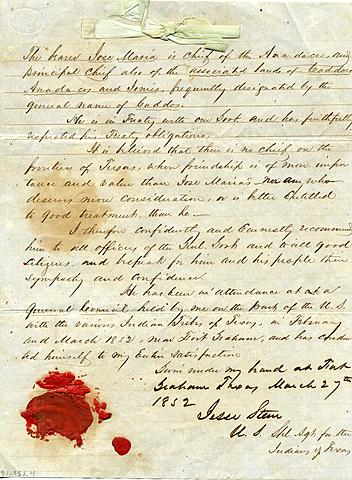 The bearer Jose Maria is Chief of the Anadacos, and
principal Chief also of the associated bands of Caddos
Anadacos and Ionies, frequently designated by the
general name of Caddos.
He is in Treaty with our Govt and has faithfully
respected his Treaty obligations.
It is believed that there is no chief on the
frontiers of Texas, whose friendship is of more impor
tance and value than Jose Maria's — nor any who
deserves more consideration, or is better entitled
to good treatment, than he —
I therefore confidently and earnestly recommend
him to all officers of the Genl. Govt and to all good
citizens, and bespeak for him and his people their
sympathy and confidence
He has been in attendance at a
General Council held by me on the part of the U.S.
with the various Indian Tribes of Texas, in February
and March 1852, near Fort Graham, and has conduc
ted himself to my entire satisfaction
Given under my hand at Fort
Graham Texas March 27th
1852
Jesse Stem
U. S. Spl. Agt. for the
Indians of Texas